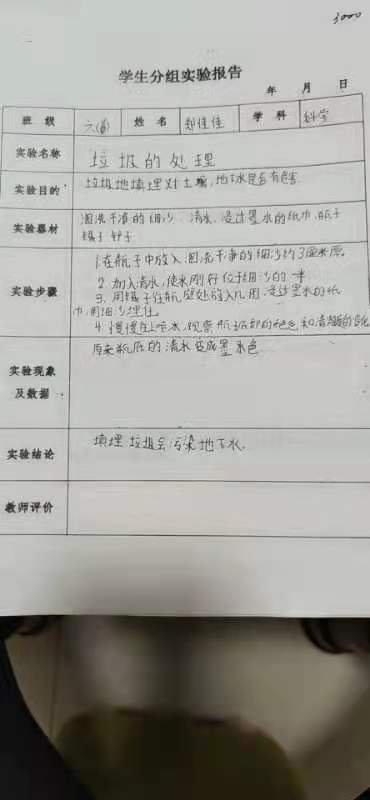 3000
学生分组实验报告
年 月 日
班级 六(1) 姓名 郑佳佳 学科 科学
实验名称 垃圾的处理
实验目的 垃圾地填埋对土壤,地下水是否有危害
实验器材 淘洗干净的细沙、清水、浸过墨水的纸巾、瓶子
镊子 钟子
实验步骤 1.在瓶子中放入淘洗干净的细沙约3厘米厚
2.加入清水,使水刚好位于细沙的一半
3.用镊子往瓶壁处放入几团浸过墨水的纸
巾,用细沙埋住
4.慢慢在上喷水,观察瓶底部的颜色和清水的变化
实验现象及数据 原来瓶底的清水变成墨水色
实验结论 填埋垃圾会污染地下水.
教师评价